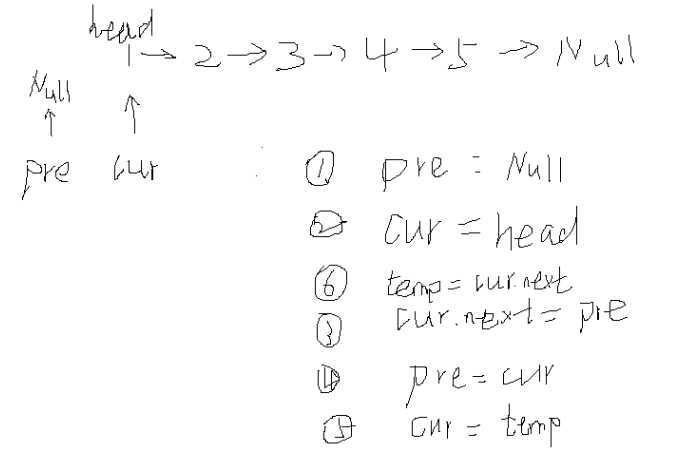 head
1 → 2 → 3 → 4 → 5 → Null
Null
↑ ↑
pre cur
① pre = Null
② cur = head
⑥ temp = cur.next
③ cur.next = pre
④ pre = cur
⑤ cur = temp